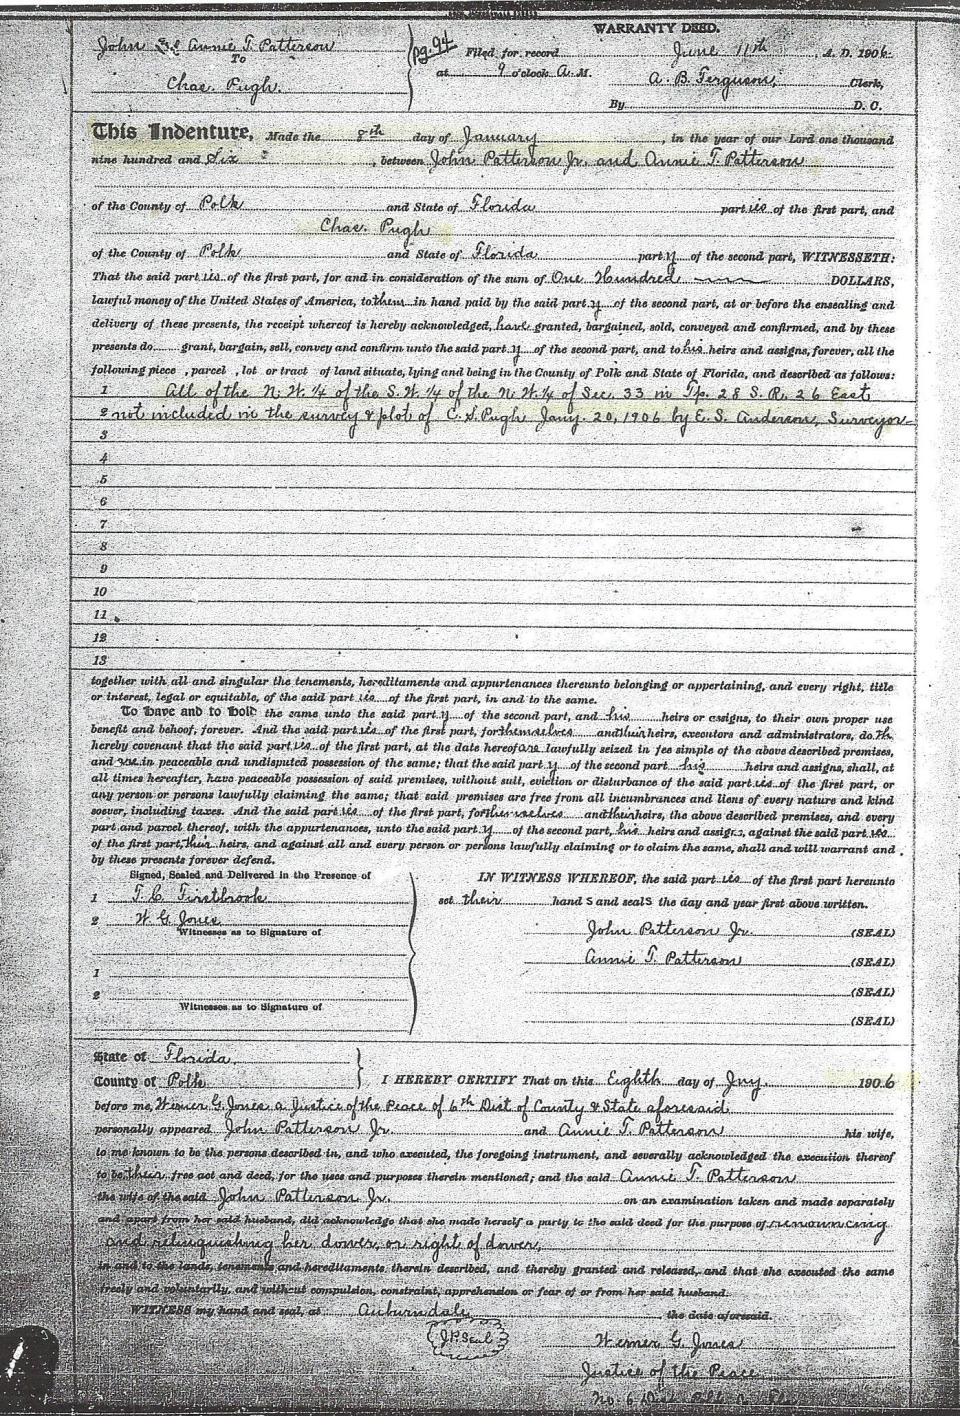 WARRANTY DEED.
John & Annie T. Patterson
To
Chas. Pugh.
pg. 94
Filed for record June 11th, A. D. 1906
at 9 o'clock A. M. A. B. Ferguson, Clerk,
By D. C.
This Indenture, Made the 8th day of January, in the year of our Lord one thousand
nine hundred and Six, between John Patterson Jr. and Annie T. Patterson
of the County of Polk and State of Florida parties of the first part, and
Chas. Pugh
of the County of Polk and State of Florida party of the second part, WITNESSETH:
That the said parties of the first part, for and in consideration of the sum of One Hundred DOLLARS,
lawful money of the United States of America, to them in hand paid by the said party of the second part, at or before the ensealing and
delivery of these presents, the receipt whereof is hereby acknowledged, have granted, bargained, sold, conveyed and confirmed, and by these
presents do grant, bargain, sell, convey and confirm unto the said party of the second part, and to his heirs and assigns, forever, all the
following piece , parcel , lot or tract of land situate, lying and being in the County of Polk and State of Florida, and described as follows:
1 All of the N. W. 1/4 of the S. W. 1/4 of the N. W. 1/4 of Sec. 33 in Tp. 28 S. R. 26 East
2 not included in the survey & plot of C. S. Pugh Jany. 20, 1906 by E. S. Anderson, Surveyor
3
4
5
6
7
8
9
10
11
12
13
together with all and singular the tenements, hereditaments and appurtenances thereunto belonging or appertaining, and every right, title
or interest, legal or equitable, of the said parties of the first part, in and to the same.
To Have and to Hold the same unto the said party of the second part, and his heirs or assigns, to their own proper use
benefit and behoof, forever. And the said parties of the first part, for themselves and their heirs, executors and administrators, do th
hereby covenant that the said parties of the first part, at the date hereof are lawfully seized in fee simple of the above described premises,
and are in peaceable and undisputed possession of the same; that the said party of the second part his heirs and assigns, shall, at
all times hereafter, have peaceable possession of said premises, without suit, eviction or disturbance of the said parties of the first part, or
any person or persons lawfully claiming the same; that said premises are free from all incumbrances and liens of every nature and kind
soever, including taxes. And the said parties of the first part, for themselves and their heirs, the above described premises, and every
part and parcel thereof, with the appurtenances, unto the said party of the second part, his heirs and assigns, against the said parties
of the first part, their heirs, and against all and every person or persons lawfully claiming or to claim the same, shall and will warrant and
by these presents forever defend.
Signed, Sealed and Delivered in the Presence of
1 T. C. Firstbrook
2 W. G. Jones
Witnesses as to Signature of
1
2
Witnesses as to Signature of
IN WITNESS WHEREOF, the said parties of the first part hereunto
set their hands and seals the day and year first above written.
John Patterson Jr. (SEAL)
Annie T. Patterson (SEAL)
(SEAL)
(SEAL)
State of Florida,
County of Polk
I HEREBY CERTIFY That on this Eighth day of Jny. 1906
before me, Werner G. Jones a Justice of the Peace of 6th Dist of County & State aforesaid
personally appeared John Patterson Jr. and Annie T. Patterson his wife,
to me known to be the persons described in, and who executed, the foregoing instrument, and severally acknowledged the execution thereof
to be their free act and deed, for the uses and purposes therein mentioned; and the said Annie T. Patterson
the wife of the said John Patterson Jr. on an examination taken and made separately
and apart from her said husband, did acknowledge that she made herself a party to the said deed for the purpose of renouncing
and relinquishing her dower, or right of dower,
in and to the lands, tenements and hereditaments, therein described, and thereby granted and released, and that she executed the same
freely and voluntarily, and without compulsion, constraint, apprehension or fear of or from her said husband.
WITNESS my hand and seal, at Auburndale, the date aforesaid.
J.P. Seal
Werner G. Jones
Justice of the Peace
No. 6 Dist. Polk